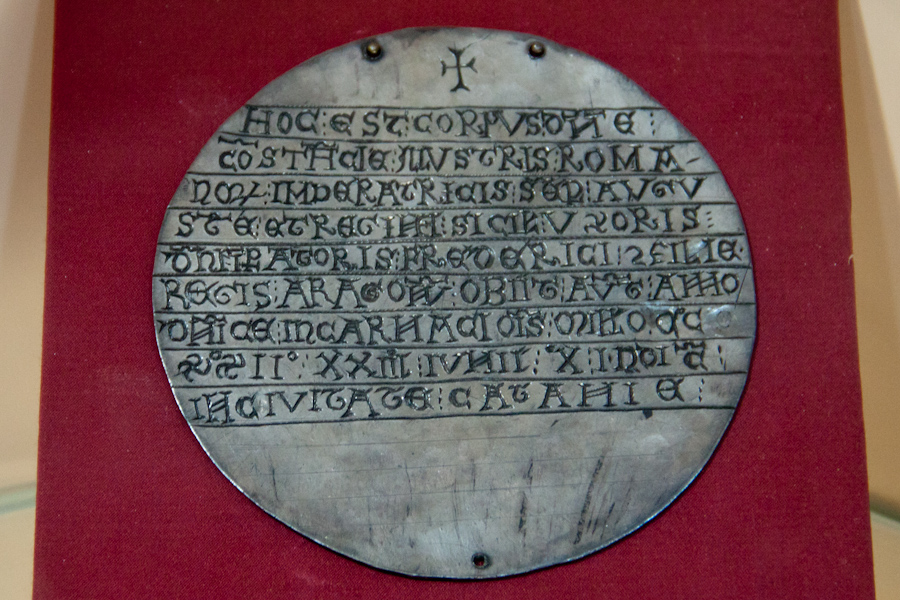 HOC : EST : CORPUS : DNE :
COSTACIE : ILLUSTRIS : ROMA-
NOR : IMPERATRICIS : SEP : AUGU
STE : ET REGINE : SICIL : UXORIS :
DNI IPATORIS : FREDERICI : 2 FILIE
REGIS : ARAGON : OBIIT : AUT : ANNO
DNICE : INCARNACIOIS : MILLO CC
XX II° XXIII IUNII : X INDIT
IN CIVITATE : CATANIE :